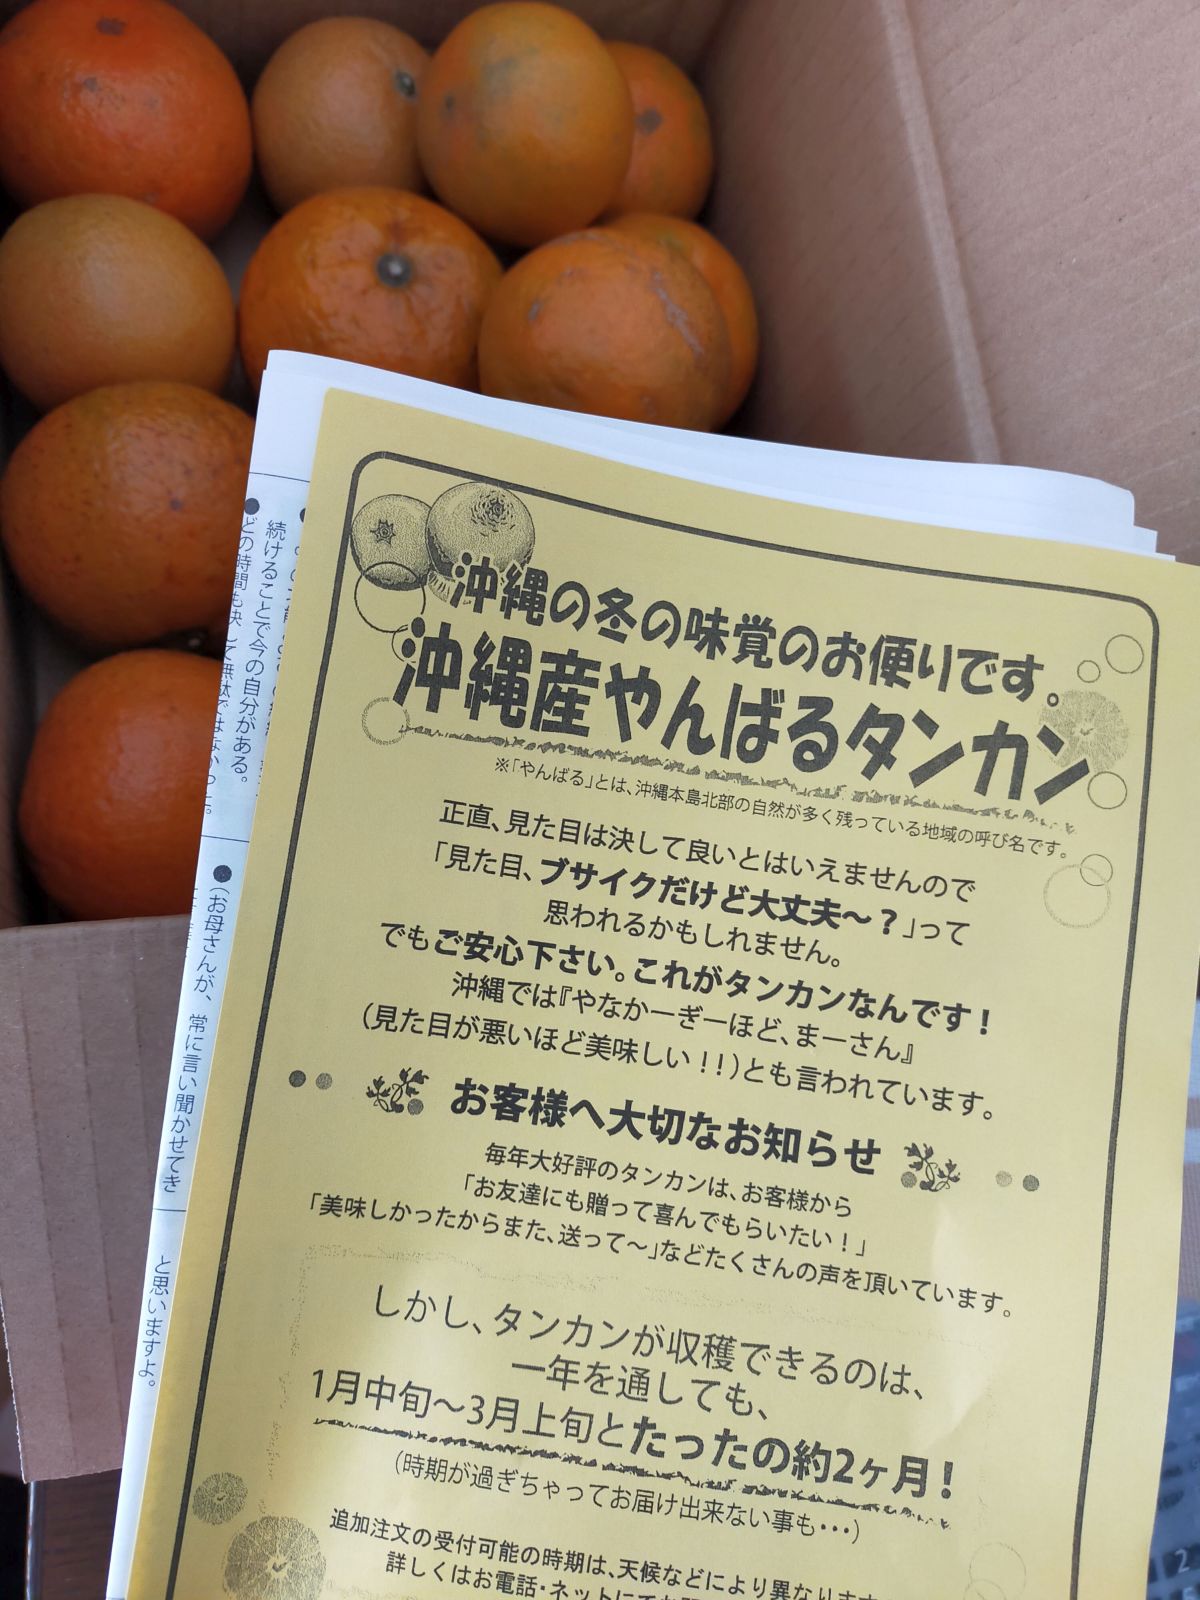 沖縄の冬の味覚のお便りです。
沖縄産やんばるタンカン
※「やんばる」とは、沖縄本島北部の自然が多く残っている地域の呼び名です。
正直、見た目は決して良いとはいえませんので
「見た目、ブサイクだけど大丈夫～？」って
思われるかもしれません。
でもご安心下さい。これがタンカンなんです！
沖縄では『やなかーぎーほど、まーさん』
(見た目が悪いほど美味しい！！)とも言われています。
お客様へ大切なお知らせ
毎年大好評のタンカンは、お客様から
「お友達にも贈って喜んでもらいたい！」
「美味しかったからまた、送って～」などたくさんの声を頂いています。
しかし、タンカンが収穫できるのは、
一年を通しても、
1月中旬～3月上旬とたったの約2ヶ月！
(時期が過ぎちゃってお届け出来ない事も・・・)
追加注文の受付可能の時期は、天候などにより異なります
詳しくはお電話・ネットにて
続けることで今の自分がある。
●どの時間も決して無駄ではなかった。
●(お母さんが、常に言い聞かせてき
と思いますよ。